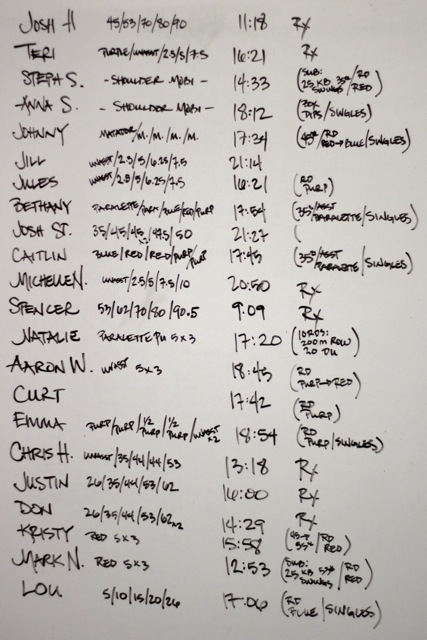 JOSH H 45/53/70/80/90 11:18 Rx
TERI PURPLE/UNASST/2.5/5/7.5 16:21 Rx
STEPH S. - SHOULDER MOBI - 14:33 (SUB: 25 KB 35#/RD SWINGS/RED)
ANNA S. - SHOULDER MOBI - 18:12 (BOX DIPS/SINGLES)
JOHNNY MATADOR/M./M./M./M. 17:34 (45#/RD RED→BLUE/SINGLES)
JILL UNASST/2.5/5/6.25/7.5 21:14
JULES UNASST/2.5/5/6.25/7.5 16:21 (RD PURP)
BETHANY PARALETTE/PARA/BLUE/RED/PURP 17:54 (35#/ASST PARALETTE/SINGLES)
JOSH ST. 35/45/45/47.5/50 21:27 (
CAITLIN BLUE/RED/RED/PURP/PURP 17:45 (35#/ASST PARALETTE/SINGLES)
MICHELLE N. UNASST/2.5/5/7.5/10 20:50 Rx
SPENCER 53/62/70/80/90.5 9:09 Rx
NATALIE PARALETTE PU 5x3 17:20 (10 RDS: 200m ROW 20 DU)
AARON W. UNASST 5x3 18:45 (RD PURP→RED)
CURT 17:42 (RD PURP)
EMMA PURP/PURP/1/2 PURP/1/2 PURP/UNASST x2 18:54 (RD PURP/SINGLES)
CHRIS H. UNASST/35/44/44/53 13:18 Rx
JUSTIN 26/35/44/53/62 16:00 Rx
DON 26/35/44/53/62x2 14:29 Rx
KRISTY RED 5x3 15:58 (45→35#/RD RED)
MARK N. RED 5x3 12:53 (SUB: 25 KB 53#/RD SWINGS/RED)
LOU 5/10/15/20/26 17:06 (RD BLUE/SINGLES)